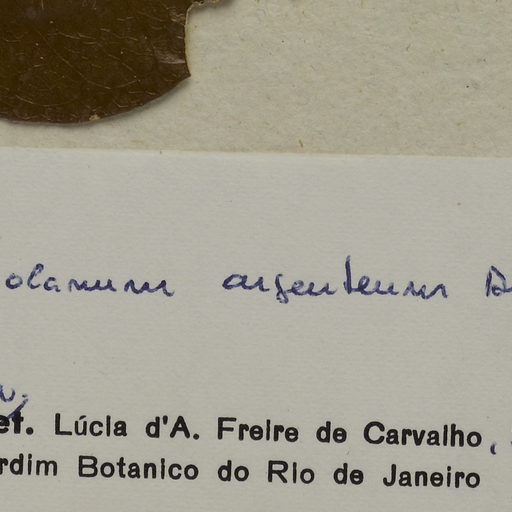 olanum argenteum D
et. Lúcia d'A. Freire de Carvalho,
rdim Botanico do Rio de Janeiro